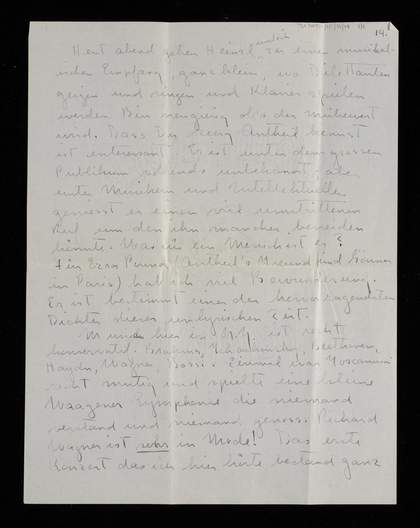 14.
Heut abend gehen Heinsl und ich zu einem musikal-
ischen Empfang, ganz klein, wo Dilettanten
geigen und singen und Klavier spielen
werden. Bin neugierig ob's der mühewert
wird. Dass Du Georg Antheil kennst
ist interessant. Er ist unter dem grossen
Publikum unbekannt, aber
unter Musikern und Intellektuellen
geniesst er einen viel umstrittenen
Ruf um den ihn mancher beneiden
könnte. Was für ein Mensch ist er?
Für Ezra Pound (Antheil's Freund und Gönner
in Paris) hab ich viel Bewunderung.
Er ist bestimmt einer der hervorragendsten
Dichter dieser unlyrischen Zeit.
Musik hier in N.Y. ist recht
konservativ. Brahms, Tschaikowsky, Beethoven,
Haydn, Wagner, Rossi. Einmal war Toscanini
recht mutig und spielte eine kleine
Wagener Symphonie die niemand
verstand und niemand genoss. Richard
Wagner ist sehr in Mode! Das erste
Konzert das ich hier hörte bestand ganz